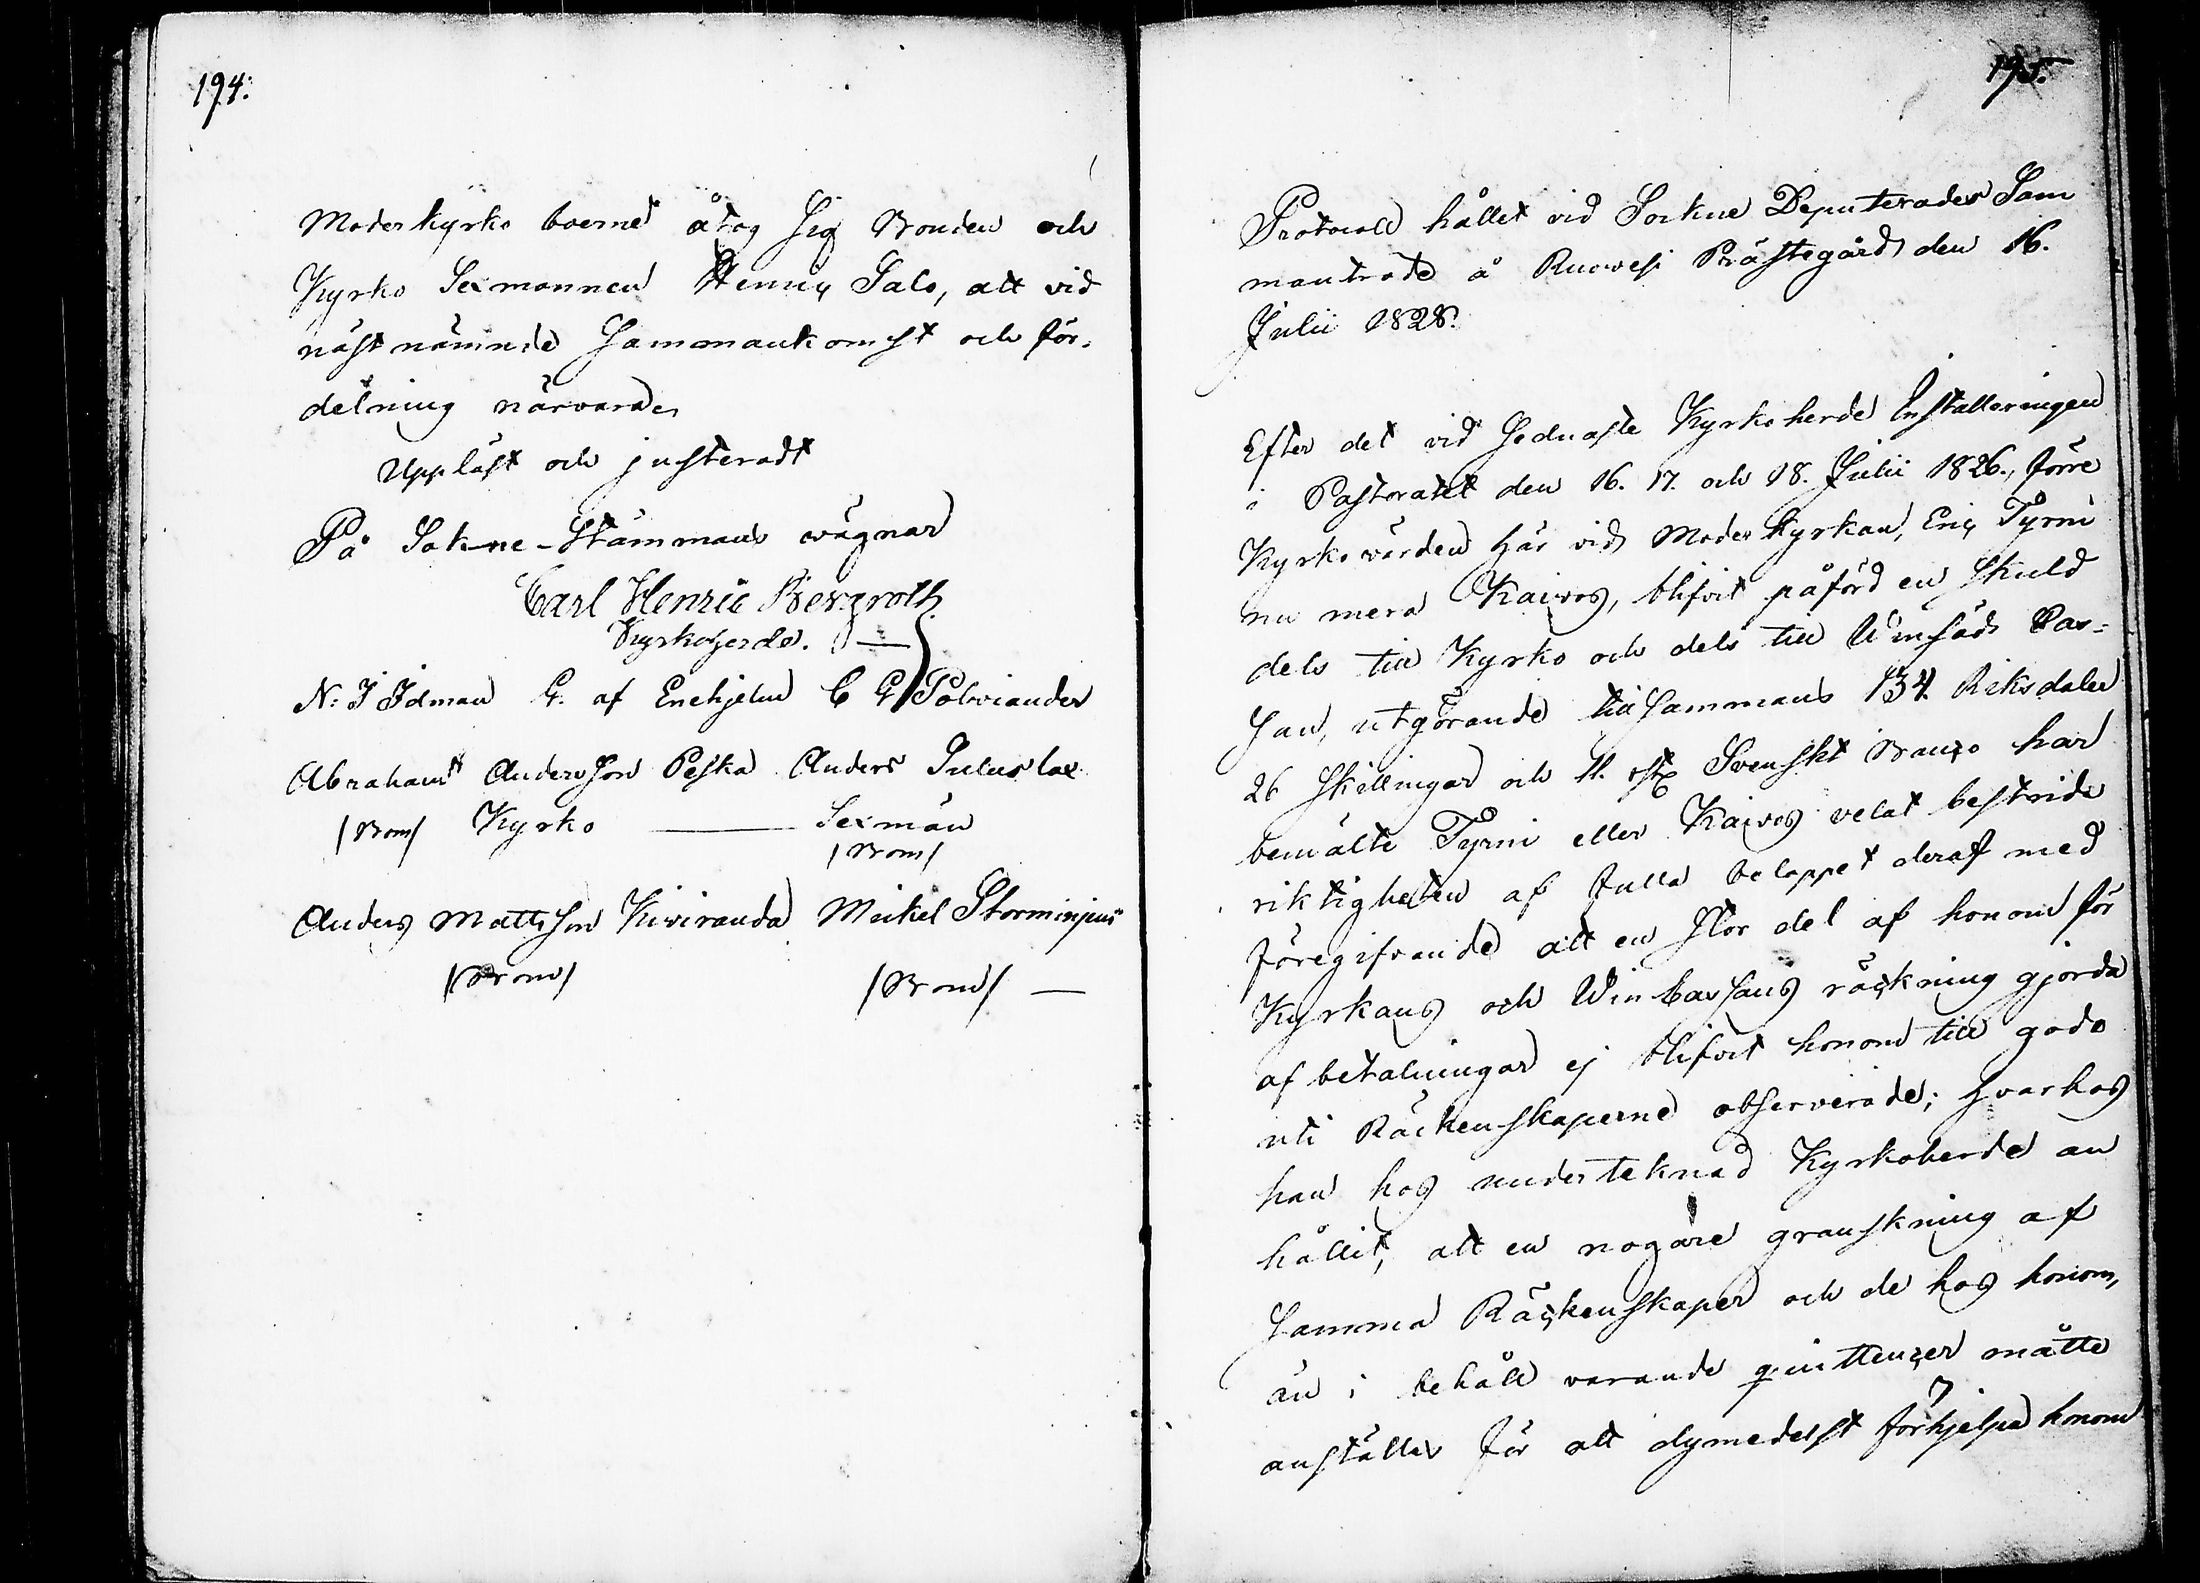 194.
Moderkyrko boerne åtog sig Bonden och
Kyrko Sexmannen Henric Salo, att vid
näst nämnde Sammankomst och för-
delning närvara.
Uppläst och justeradt
På Sokne-Stämmans wägnar
Carl Henric Bergroth
Kyrkoherde.
N: J Idman G. af Enehjelm C G Polviander
Abraham Andersson Peska Anders
(Bom) Kyrko ——— Sexmän
(Bom)
Anders Mattsson Kiviranda Mickel Storminjeni
(Bom) (Bom) —
195.
Protocoll hållet vid Sockne Deputerades Sam
manträde å Ruowesi Prästegård den 16.
Julii 1828.
Efter det vid sednaste Kyrkoherde Installeringen
i Pastoratet den 16. 17. och 18. Julii 1826., förre
Kyrkovärden här vid Moderkyrkan, Eric Tyrni
nu mera Kaivos, blifvit påförd en skuld
dels till Kyrko och dels till Winsäds Cas-
san, utgörande tillsammans 134. Riksdaler
26 Skillingar och 11. rst Svenskt Banco har
bemälte Tyrni eller Kaivos velat bestrida
riktigheten af fulla beloppet deraf med
föregifvande att en stor del af honom för
Kyrkans och Wincassans räckning gjorda
afbetalningar ej blifvit honom till godo
uti Räckenskaperne observerade; hvarhos
han hos undertecknad Kyrkoherde an
hållit, att en nogare granskning af
samma Räckenskaper och de hos honom,
än i behåll varande quittencer måtte
anställas för att dymedelst förhjelpa honom